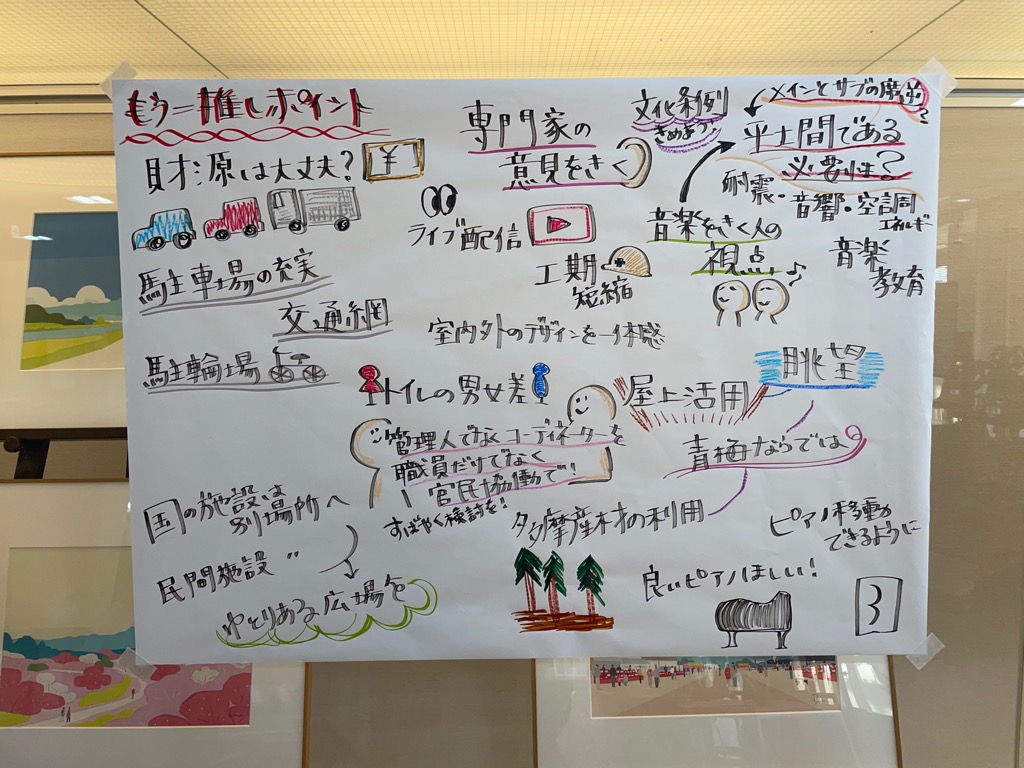 もう一推しポイント
財源は大丈夫?
¥
駐車場の充実
交通網
駐輪場
専門家の
意見をきく
文化条例
きめよう
メインとサブの席
平土間である
必要性?
耐震・音響・空調
エネルギー
音楽をきく人の
視点
♪
音楽
教育
ライブ配信
工期
短縮
室内外のデザインを一体感
トイレの男女差
屋上活用
眺望
青梅ならでは
管理人でなくコーディネーターを
職員だけでなく
官民協働で!
すばやく検討を!
国の施設は
別場所へ
民間施設 〃
ゆとりある広場を
多摩産材の利用
良いピアノほしい!
ピアノ移動
できるように